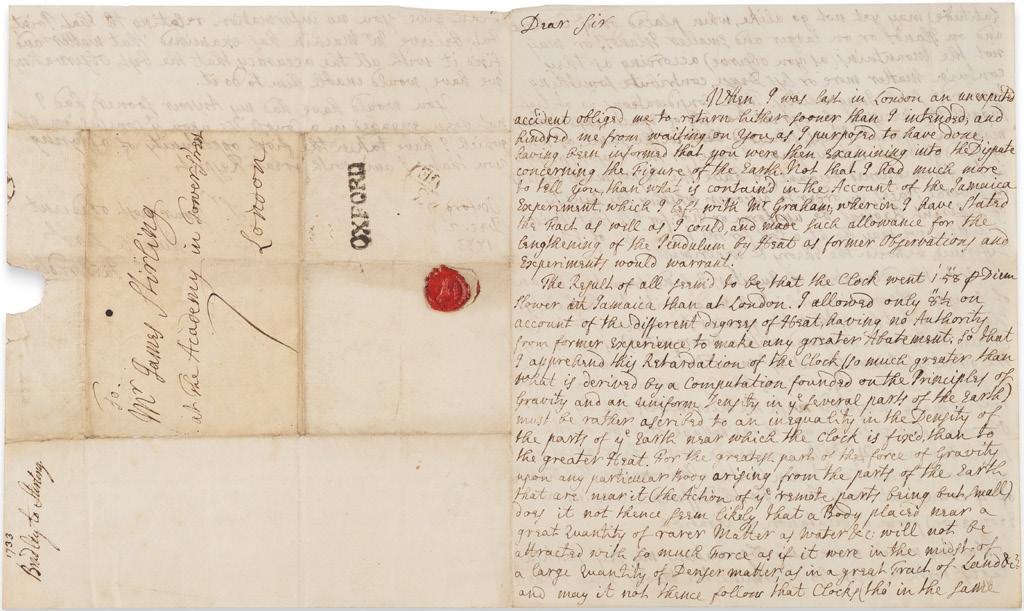 To
Mr James Stirling
at the Academy in Tower Street
London
OXFORD
1733
Bradley to Stirling
Dear Sir
When I was last in London an unexpected
accident obliged me to return hither sooner than I intended, and
hindred me from waiting on You, as I purposed to have done,
having been informed that you were then examining into the Dispute
concerning the Figure of the Earth. Not that I had much more
to tell you, than what is containd in the Account of the Jamaica
Experiment, which I left with Mr Graham, wherein I have stated
the Fact as well as I could, and made such allowance for the
Lengthening of the Pendulum by Heat as former Observations and
Experiments would warrant.
The Result of all seem'd to be, that the Clock went 1' 58" ⅌ Diem
slower in Jamaica than at London. I allowed only 8"½ on
account of the different degrees of Heat, having no Authority
from former Experience to make any greater Abatement; So that
I apprehend this Retardation of the Clock (so much greater than
what is derived by a Computation founded on the Principles of
Gravity and an uniform Density in ye several parts of the Earth)
must be rather ascribed to an inequality in the Density of
the parts of ye Earth near which the Clock is fixed, than to
the greater Heat. For the greatest part of the force of Gravity
upon any particular Body arising from the parts of the Earth
that are near it (the Action of ye remote parts being but small)
does it not thence seem likely that a Body placed near a
great Quantity of rarer Matter as Water &c. will not be
attracted with so much Force as if it were in the midst of
a large Quantity of Denser matter, as in a great Tract of Land &c
and may it not thence follow that Clocks (tho' in the same